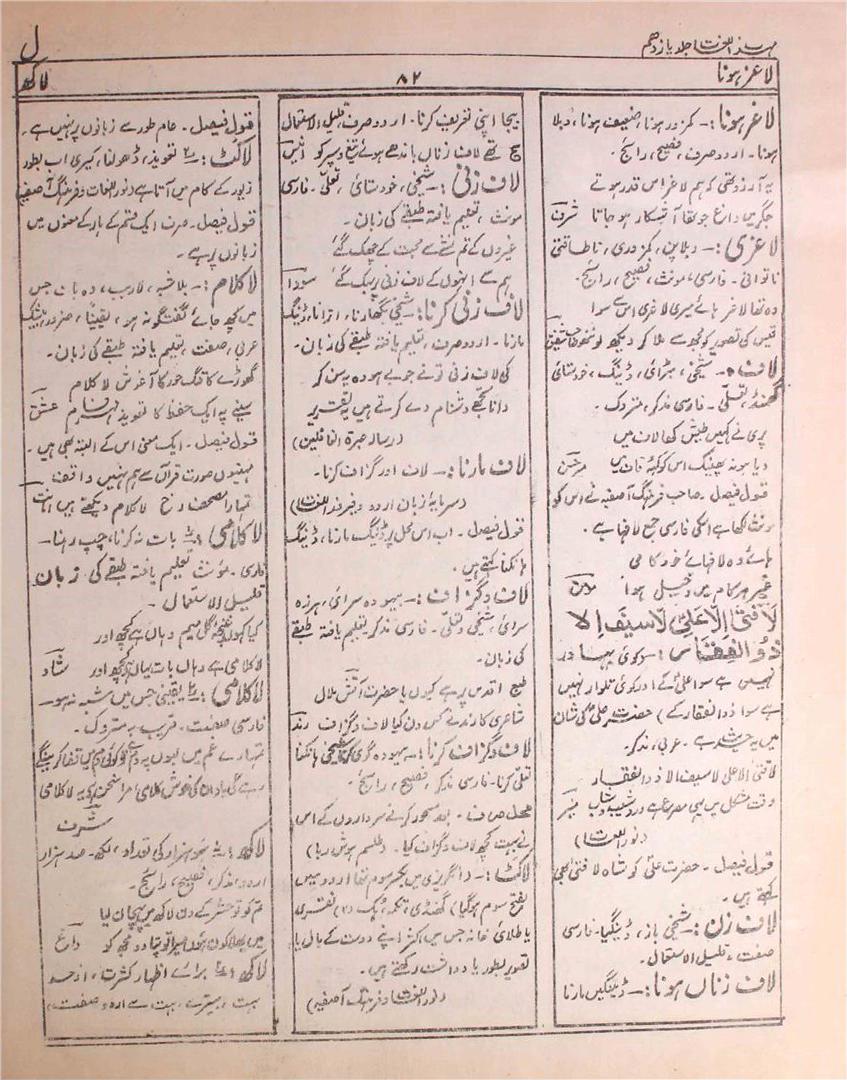 مہذب اللغات جلد یازدہم
ل
لاغر ہونا
۸۲
لاکھ
لاغر ہونا :۔ کمزور ہونا، ضعیف ہونا، دبلا
ہونا۔ اردو صرف، فصیح، رائج۔
یہ آرزو تھی کہ ہم لاغر اس قدر ہوتے
جگر میں داغ جو تھا آشکار ہو جاتا شرف
لاغری :۔ دبلاپن، کمزوری، ناطاقتی
ناتوانی۔ فارسی، مونث، فصیح، رائج۔
وہ تھا لاغر ہائے میری لاغری اس سے سوا
قیس کی تصویر کو مجھ سے ملا کر دیکھ لو
لاف :۔ شیخی، بڑائی، ڈینگ، خودستائی
گھمنڈ، تعلّی۔ فارسی مذکر، متروک۔
پری نے کہیں طیش کھا لاف میں
دیا ہو نہ پھینک اس کو کوہ قاف میں
قول فیصل۔ صاحب فرہنگ آصفیہ نے اس کو
مونث لکھا ہے اسکی فارسی جمع لافہا ہے۔
ہائے وہ لافہائے خود کامی
غیر ہر کام میں دخیل ہوا
لَا فَتیٰ اِلّا عَلِیؑ لَا سَیفَ اِلَّا
ذُوالفِقَار :۔ کوئی بہادر
نہیں ہے سوا علیؑ کے اور کوئی تلوار نہیں
ہے سوا ذوالفقار کے) حضرت علیؑ کی شان
میں یہ حدیث ہے۔ عربی، مذکر۔
لا فتیٰ الا علی لا سیف الا ذوالفقار
وقت مشکل میں یہی مصرع ہے ورد شیخ و شاب منیر
(نور اللغات)
قول فیصل۔ حضرت علیؑ کو شاہ لا فتیٰ بھی
کہتے ہیں۔
لاف زن :۔ شیخی باز، ڈینگیا۔ فارسی
صفت، قلیل الاستعمال۔
لاف زناں ہونا :۔ ڈینگیں مارنا
بیجا اپنی تعریف کرنا۔ اردو صرف، قلیل الاستعمال
ع تھے لاف زناں باندھے ہوئے تیغ و سپر کو انیس
لاف زنی :۔ شیخی، خودستائی، تعلّی۔ فارسی
مونث، تعلیم یافتہ طبقے کی زبان۔
غیروں کے تم نشے سے محبت کے چھک گئے
ہم سے انہوں کے لاف زنی پر بہک گئے سودا
لاف زنی کرنا :۔ شیخی بگھارنا، اترانا، ڈینگ
مارنا۔ اردو صرف، تعلیم یافتہ طبقے کی زبان۔
کی لاف زنی تونے جو بے ہودہ یہ سن کر
دانا تجھے دشنام دے کرتے ہیں یہ تقریر
(رسالہ عبرۃ الغافلین)
لاف مارنا :۔ لاف اور گزاف کرنا۔
(سرمایۂ زبان اردو وغیرہ)
قول فیصل۔ اب اس محل پر ڈینگ مارنا، ڈینگ
ہانکنا کہتے ہیں۔
لاف و گزاف :۔ بیہودہ سرائی، ہرزہ
سرائی، شیخی و تعلی۔ فارسی مذکر، تعلیم یافتہ طبقے
کی زبان۔
طبع اقدس پر ہے کیوں یا حضرت آتش ملال
شاعری کا رند نے کس دن کیا لاف و گزاف رند
لاف و گزاف کرنا :۔ بیہودہ گری کرنا، شیخی ہانکنا
تعلی کرنا۔ فارسی مذکر، فصیح، رائج۔
محل صرف۔ بعد مسحور کرنے سرداروں کے اس
نے بہت کچھ لاف و گزاف کیا۔ (طلسم ہوش ربا)
لاکٹ :۔ (انگریزی میں بکسر سوم تھا اردو میں
بفتح سوم ہو گیا) گھنڈی، تکمہ، ہک (۲) نقرئی
یا طلائی خانہ جس میں اکثر اپنے دوست کے بال یا
تصویر بطور یادداشت رکھتے ہیں۔
(نور اللغات و فرہنگ آصفیہ)
قول فیصل۔ عام طور سے زبانوں پر نہیں ہے۔
لاکٹ :۔ تعویذ، ڈھولنا، کیری اب بطور
زیور کے کام میں آتا ہے (نور اللغات و فرہنگ آصفیہ)
قول فیصل۔ صرف ایک قسم کے ہار کے معنوں میں
زبانوں پر ہے۔
لاکلام :۔ بلاشبہ، لاریب، وہ بات جس
میں کچھ جائے گفتگو نہ ہو، یقیناً، ضرور، بیشک
عربی، صفت، تعلیم یافتہ طبقے کی زبان۔
گھوڑے کا تنگ حور کا آغوش لاکلام
سینے پہ ایک حفظ کا تعویذ عشق
قول فیصل۔ ایک معنی اس کے البتہ بھی ہیں۔
مہینوں صورت قرآں سے ہم نہیں واقف
تمہارا مصحف رخ لاکلام دیکھتے ہیں امانت
لاکلامی :۔ بات نہ کرنا، چپ رہنا۔
فارسی۔ مونث تعلیم یافتہ طبقے کی زبان
قلیل الاستعمال۔
کیا کہوں غنچۂ گل میم دہاں ہے کچھ اور
لاکلامی ہے دہاں بات یہاں ہے کچھ اور شاد
لاکلامی :۔ یقینی جس میں شبہ نہ ہو۔
فارسی صفت۔ قریب بہ متروک۔
تمہارے غم میں لبوں پہ دم ہے
شرف
لاکھ :۔ سو ہزار کی تعداد، لکھ۔ صد ہزار
اردو، مذکر، فصیح، رائج۔
تم کو تو حشر کے دن لاکھ میں پہچان لیا
میں بھلا کون ہوں میرا تو پتا دو مجھ کو داغ
لاکھ :۔ برائے اظہار کثرت، ازحد
بہت، بہتیرے، بہت سے اردو، صفت،